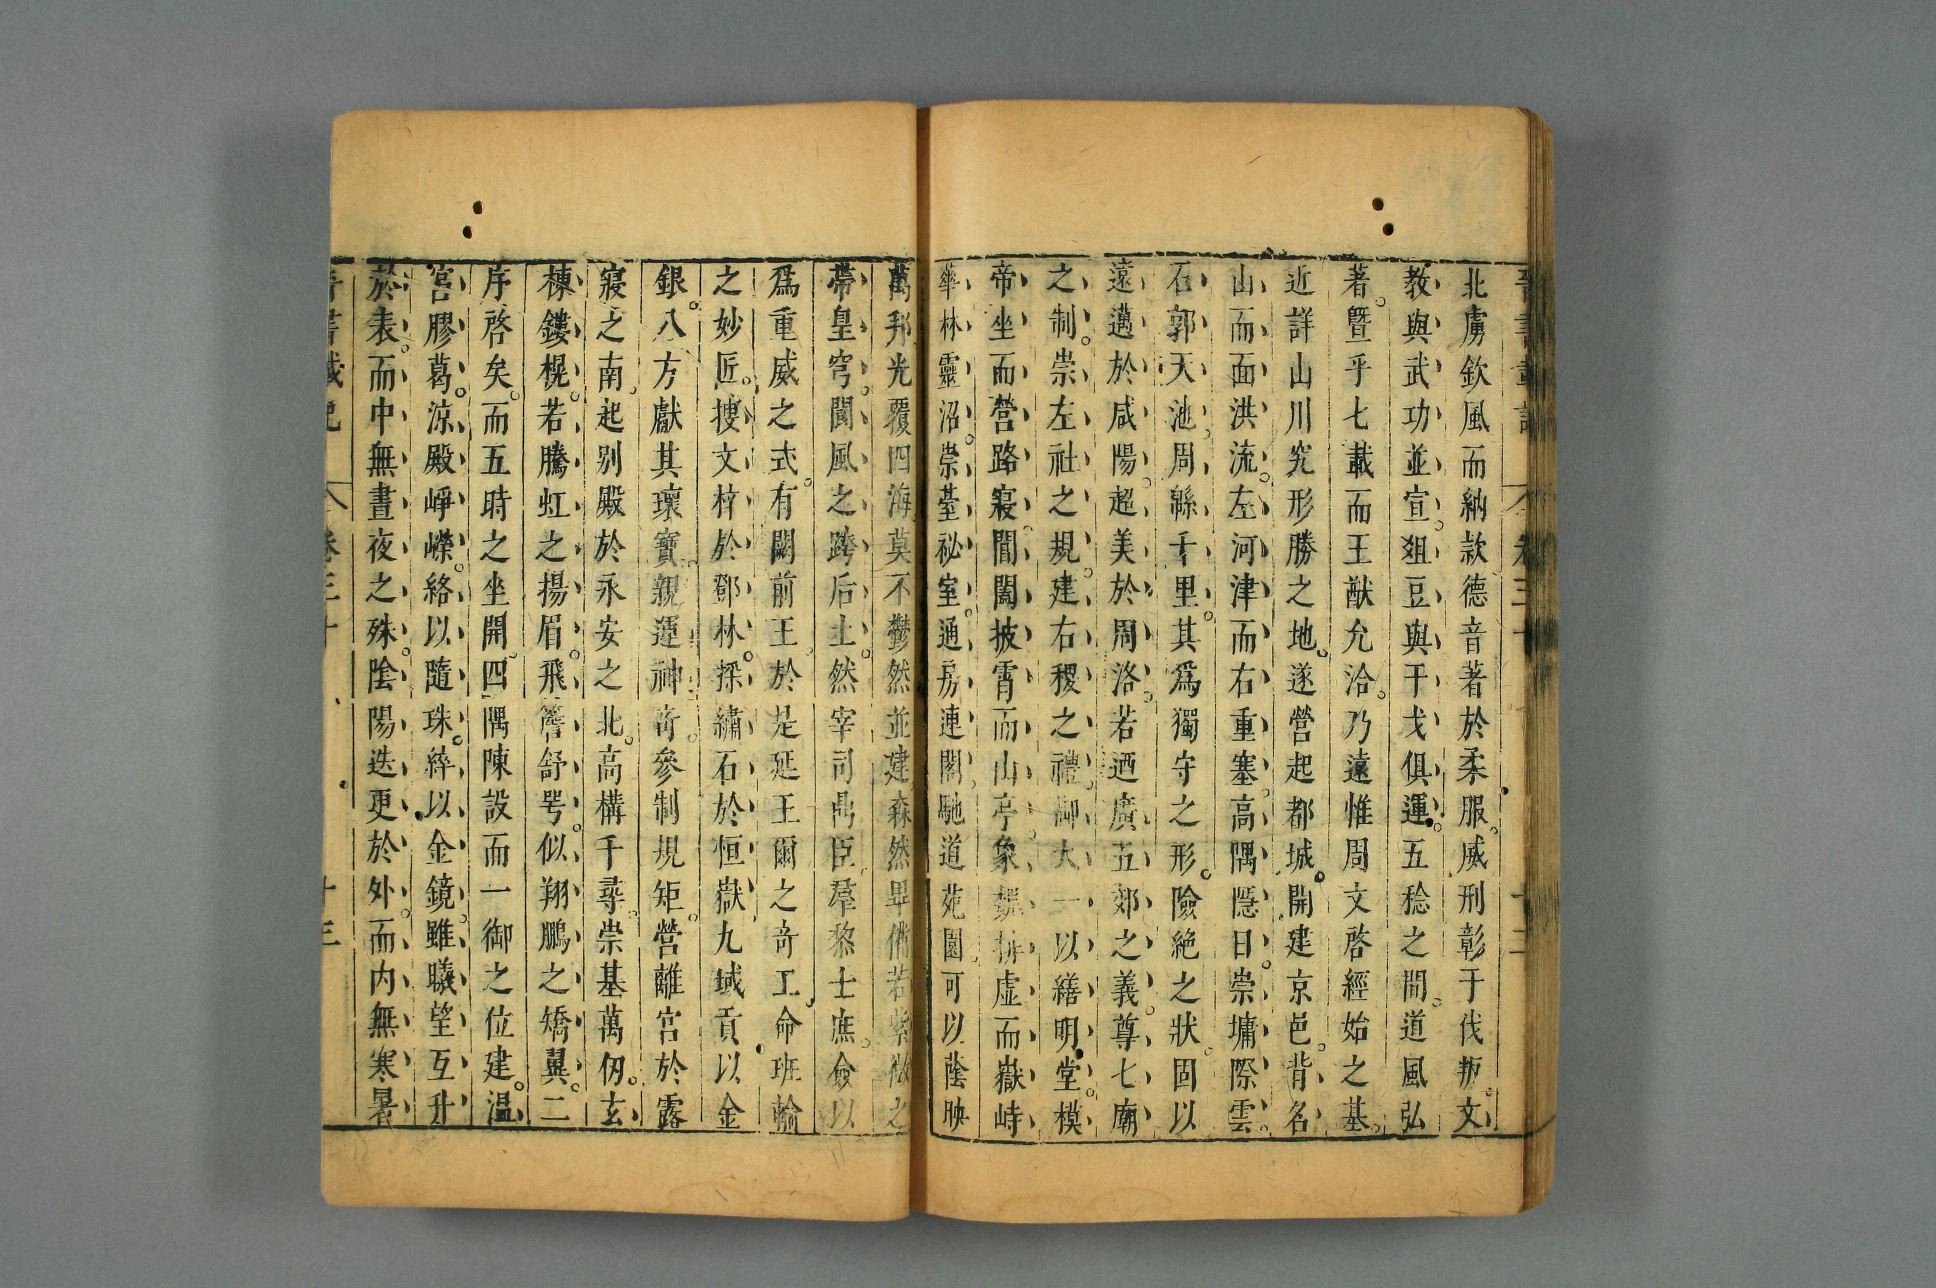 北虜欽風而納款德音著於柔服。威刑彰于伐叛。文
教與武功並宣。俎豆與干戈俱運。五稔之間。道風弘
著。曁乎七載而王猷允洽。乃遠惟周文啓經始之基。
近詳山川究形勝之地。遂營起都城。開建京邑。背名
山而面洪流。左河津而右重塞。高隅隱日。崇墉際雲。
石郭天池。周緜千里。其爲獨守之形。險絶之狀。固以
遠邁於咸陽。超美於周洛。若迺廣五郊之義。尊七廟
之制。崇左社之規。建右稷之禮。御太一以繕明堂。模
帝坐而營路寢。閶闔披霄而山亭。象魏排虚而嶽峙
華林靈沼。崇臺祕室。通房連閣。馳道苑園。可以蔭映
萬邦光覆四海。莫不鬱然並建。森然畢備若紫微之
帶皇穹。閬風之跨后土。然宰司鼎臣羣黎士庶。僉以
爲重威之式。有闕前王。於是延王爾之奇工。命班輸
之妙匠。搜文梓於鄧林。採繡石於恒嶽。九域貢以金
銀。八方獻其瓌寶。親運神奇。參制規矩。營離宮於露
寢之南。起別殿於永安之北。高構千尋。崇基萬仞。玄
棟鏤榥。若騰虹之揚眉。飛簷舒咢。似翔鵬之矯翼。二
序啓矣。而五時之坐開。四隅陳設而一御之位建。温
宮膠葛。涼殿崢嶸。絡以隨珠。綷以金鏡。雖曦望互升
於表。而中無晝夜之殊。陰陽迭更於外。而内無寒暑
卷三十 十三